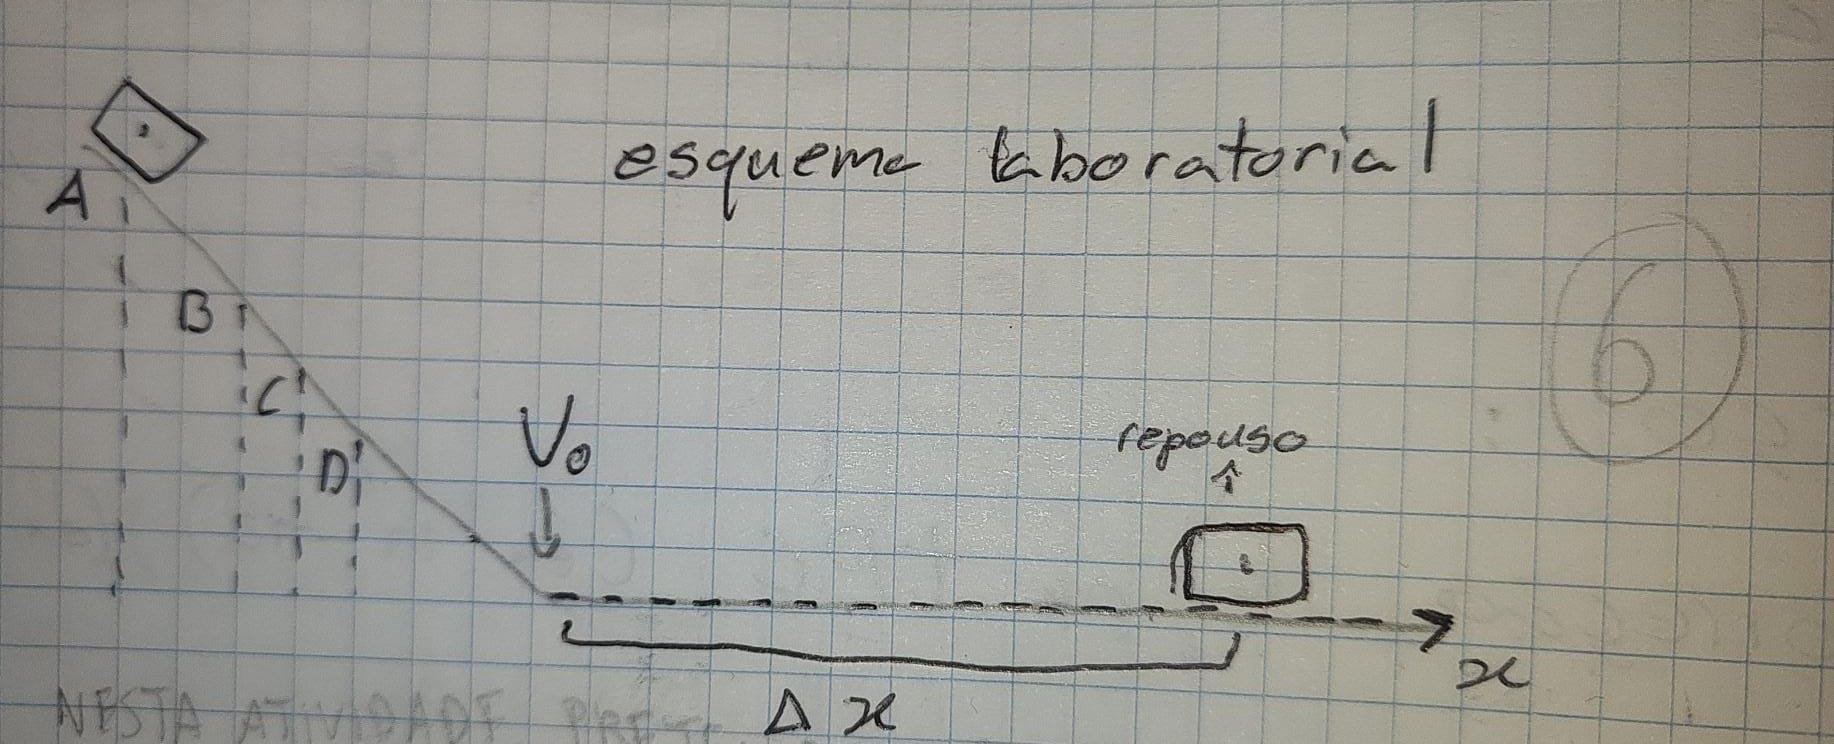 esquema laboratorial
A
B
C
D
V₀
repouso
6
x
Δx
NESTA ATIVIDADE